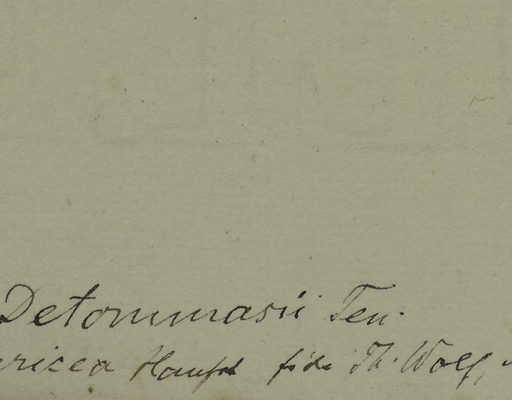 Detommasii Ten.
ericea Hausskn fide Th. Wolf,